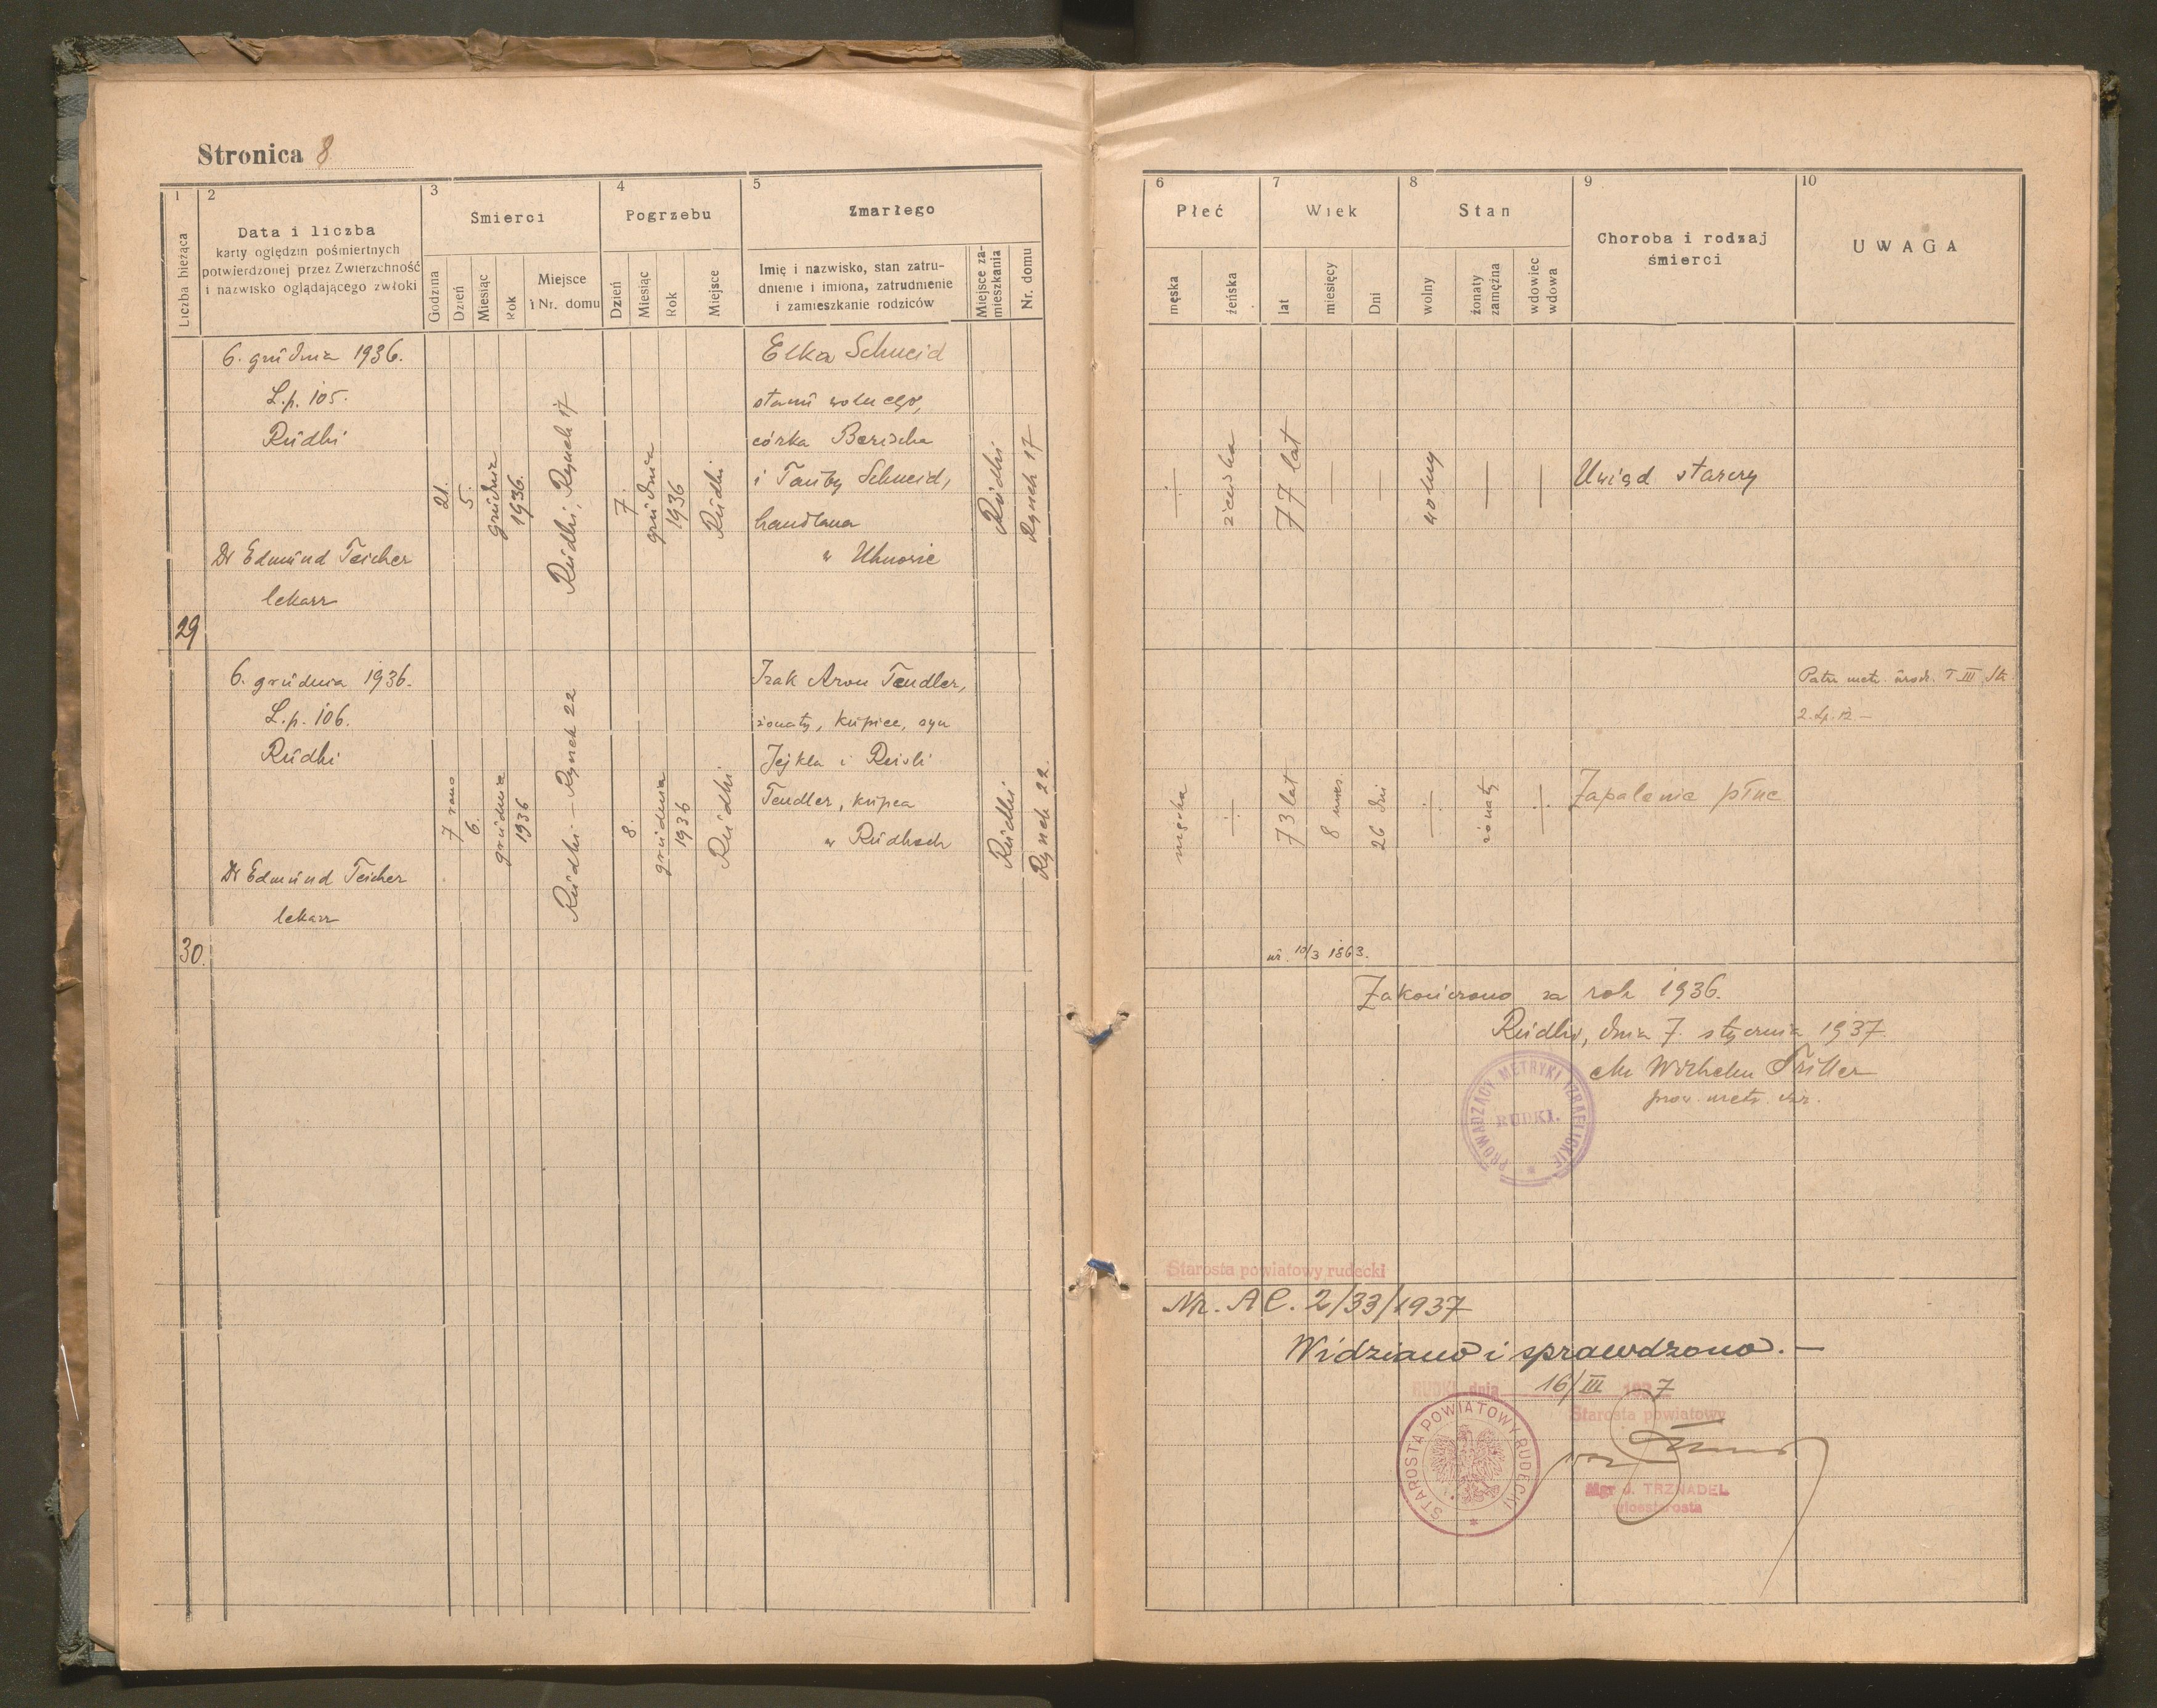 Stronica 8
1
2
3
4
5
Liczba bieżąca
Data i liczba
karty oględzin pośmiertnych
potwierdzonej przez Zwierzchność
i nazwisko oglądającego zwłoki
Śmierci
Godzina
Dzień
Miesiąc
Rok
Miejsce
i Nr. domu
Pogrzebu
Dzień
Miesiąc
Rok
Miejsce
Zmarłego
Imię i nazwisko, stan zatru-
dnienie i imiona, zatrudnienie
i zamieszkanie rodziców
Miejsce za-
mieszkania
Nr. domu
6. grudnia 1936.
L.p. 105.
Rudki
Dr Edmund Teicher
lekarz
29
21.
5.
grudnia
1936.
Rudki, Rynek 17
7.
grudnia
1936
Rudki
Elka Schneid
stanu wolnego,
córka Berischa
i Tauby Schneid,
handlana
w Uhnowie
Rudki
Rynek 17
6. grudnia 1936.
L.p. 106.
Rudki
Dr Edmund Teicher
lekarz
30.
7 rano
6.
grudnia
1936
Rudki — Rynek 22
8.
grudnia
1936
Rudki
Izak Aron Tendler,
żonaty, kupiec, syn
Jejkla i Reisli
Tendler, kupca
w Rudkach
Rudki
Rynek 22.
6
7
8
9
10
Płeć
męska
żeńska
Wiek
lat
miesięcy
Dni
Stan
wolny
żonaty
zamężna
wdowiec
wdowa
Choroba i rodzaj
śmierci
UWAGA
żeńska
77 lat
wolny
Uwiąd starczy
męska
73 lat
8 mies.
26 dni
żonaty
Zapalenie płuc
Patrz metr. urodz. T III. Str.
2. Lp. 12.—
ur. 10/3 1863.
Zakończono za rok 1936.
Rudki, dnia 7. stycznia 1937.
Wilhelm Triller
prow. metr. izr.
PROWADZĄCY METRYKI IZRAELICKIE
RUDKI.
Starosta powiatowy rudecki
Nr. AC. 2/33/1937
Widziano i sprawdzono.—
RUDKI dnia 16/III 1937
Starosta powiatowy
STAROSTA POWIATOWY RUDECKI
Mgr J. TRZNADEL
wicestarosta